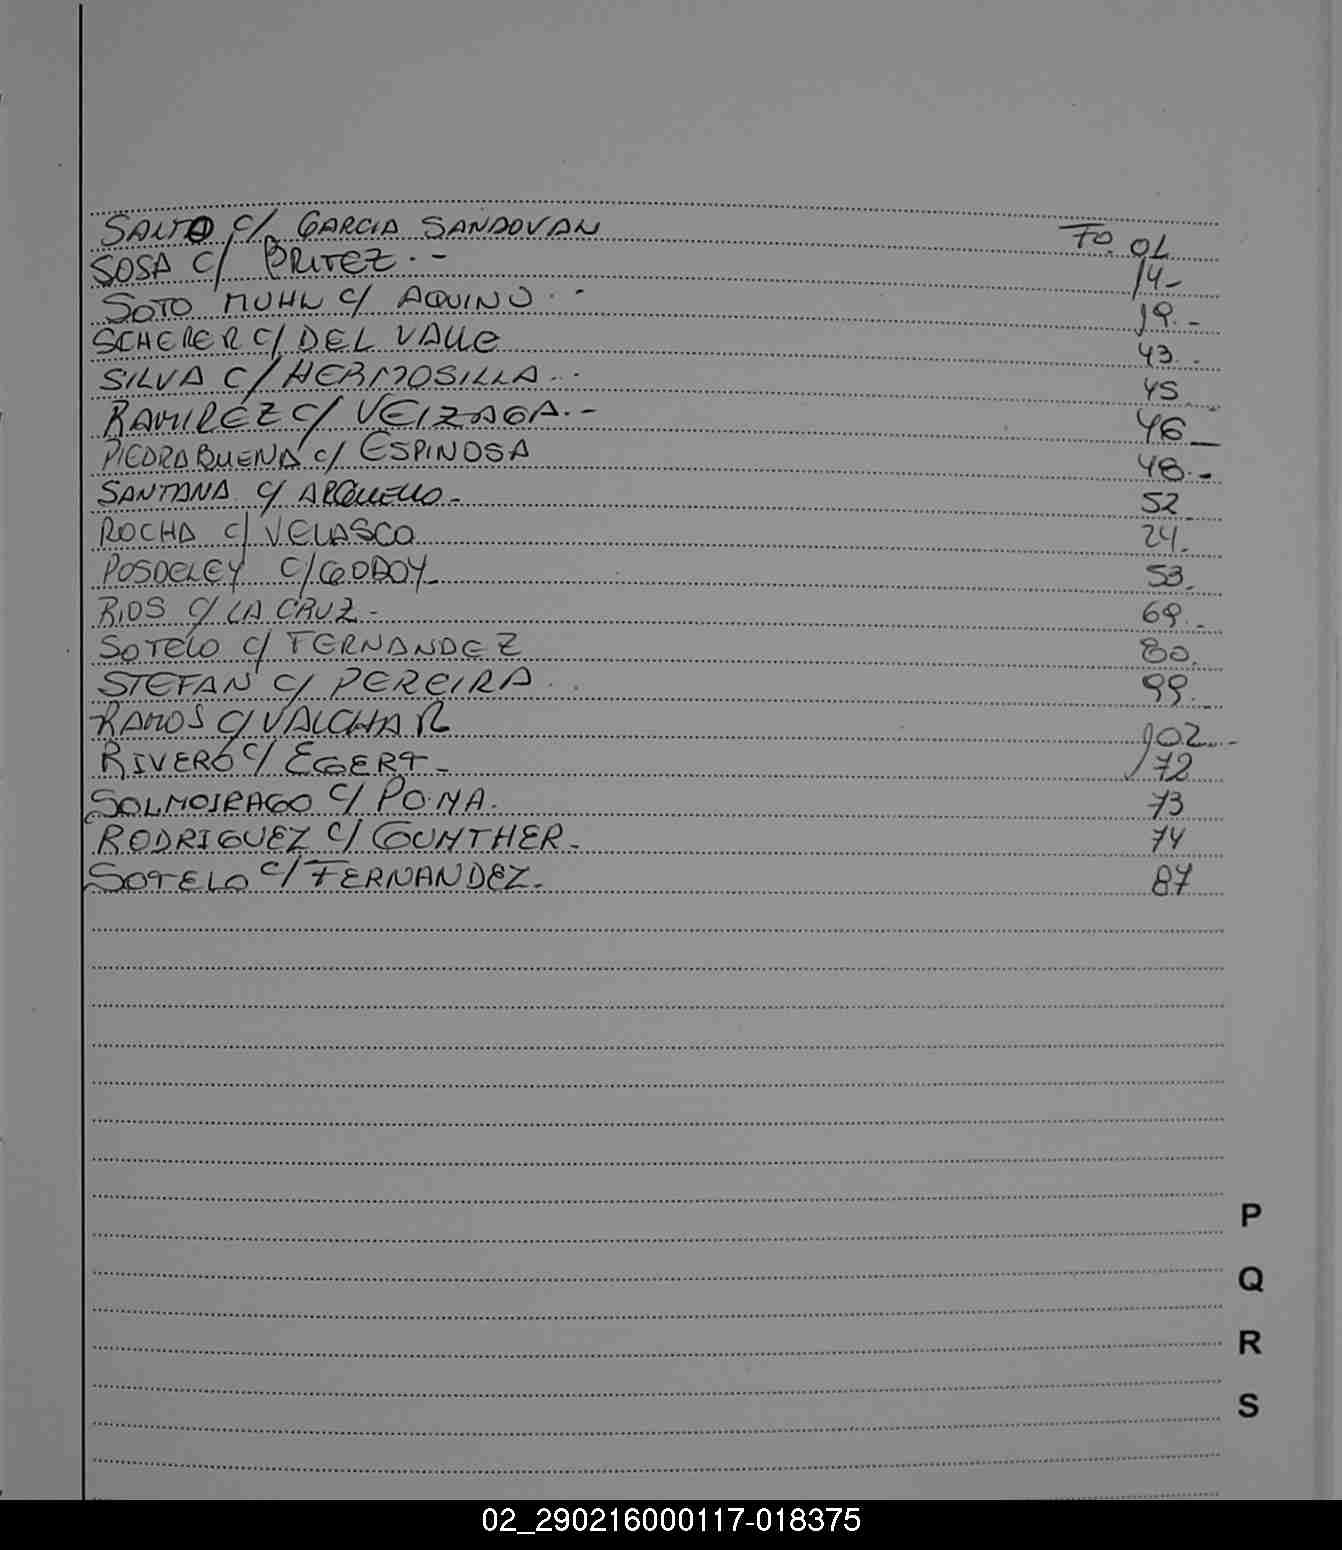 SALTO C/ GARCIA SANDOVAL Fo. 02
SOSA C/ BRITEZ.- 14-
SOTO MUHL C/ AQUINO.- 19.-
SCHERER C/ DEL VALLE 43.-
SILVA C/ HERMOSILLA.- 45
RAMIREZ C/ VEIZAGA.- 46_
PIEDRABUENA C/ ESPINOSA 48.-
SANTANA C/ ARGUELLO.- 52
ROCHA C/ VELASCO 24.
POSDELEY C/ GODOY_ 53.
RIOS C/ LA CRUZ.- 69.-
SOTELO C/ FERNANDEZ 80.
STEFAN C/ PEREIRA.. 99.
RAMOS C/ VALCHAR 102.-
RIVERO C/ EGERT_ 72
SOLMOIRAGO C/ PO.MA. 73
RODRIGUEZ C/ GUNTHER_ 74
SOTELO C/ FERNANDEZ_ 87
P
Q
R
S
02_290216000117-018375